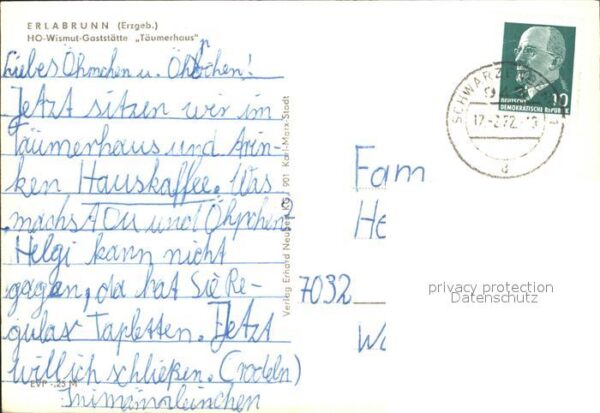 ERLABRUNN (Erzgeb.)
HO-Wismut-Gaststätte „Täumerhaus"
Liebes Öhmchen u.
Jetzt sitzen wir im
Täumerhaus und drin-
ken Hauskaffee. Was
machst Du und Öhpchen?
Helgi kann nicht
gagen, da hat Sie Re-
gular Tapletten. Jetzt
will ich schließen. (rodeln)
EVP -.25 M
Verlag Erhard Neubert KG, 901 Karl-Marx-Stadt
DEUTSCHE
DEMOKRATISCHE REPUBLIK
10
17.-2.72.-19
d
Fam
He
7032
privacy protection
Datenschutz